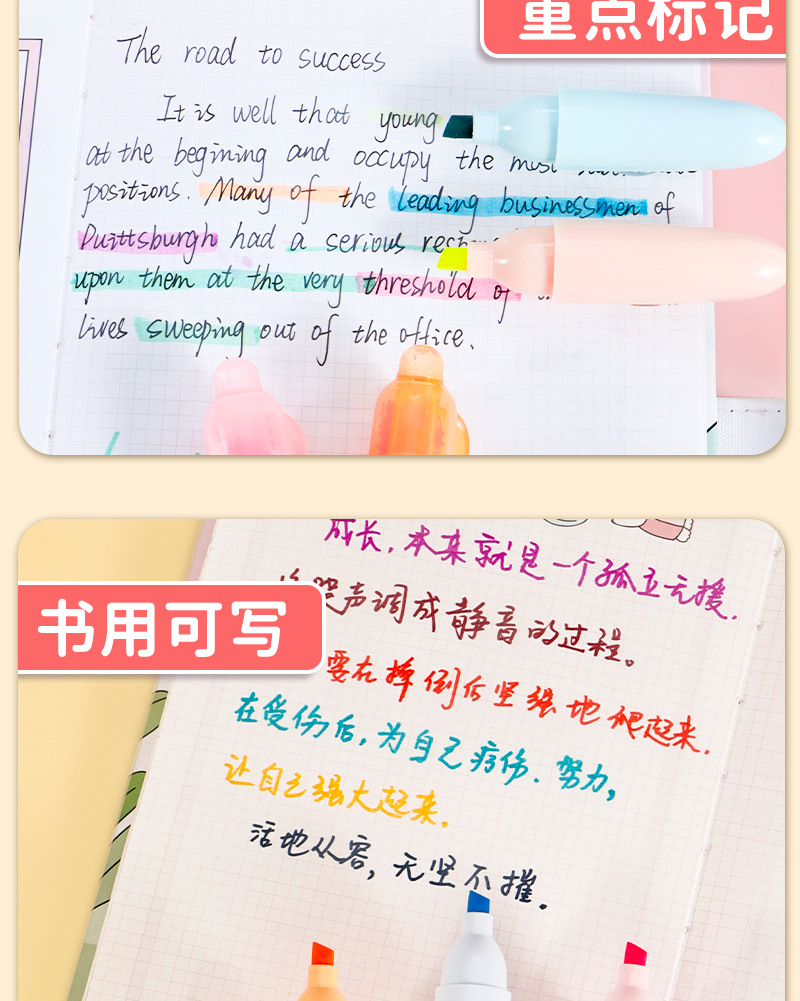 重点标记
The road to success
It is well that young
at the begining and occupy the most
positions. Many of the leading businessmen of
Puittsburgh had a serious
upon them at the very threshold of
lives sweeping out of the office.
成长,本来就是一个孤立无援.
书用可写
哭声调成静音的过程。
要在摔倒后坚强地爬起来.
在受伤后,为自己疗伤.努力,
让自己强大起来.
活地从容,无坚不摧.